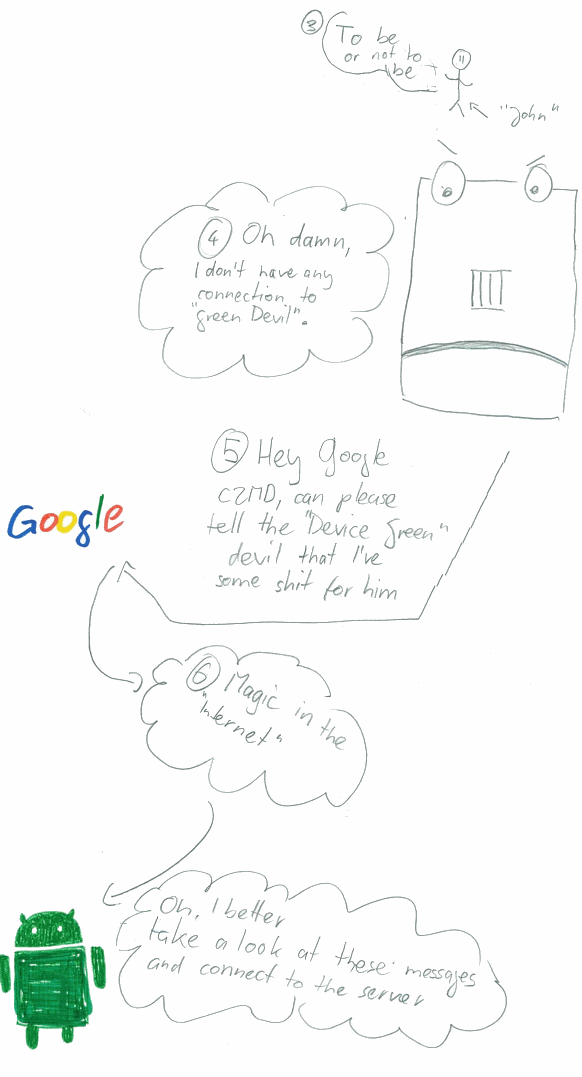 3 To be
or not to
be
"John"
4 Oh damn,
I don't have any
connection to
"green Devil".
5 Hey Google
C2MD, can please
tell the "Device green"
devil that I've
some shit for him
Google
6 Magic in the
"Internet"
Oh, I better
take a look at these messages
and connect to the server